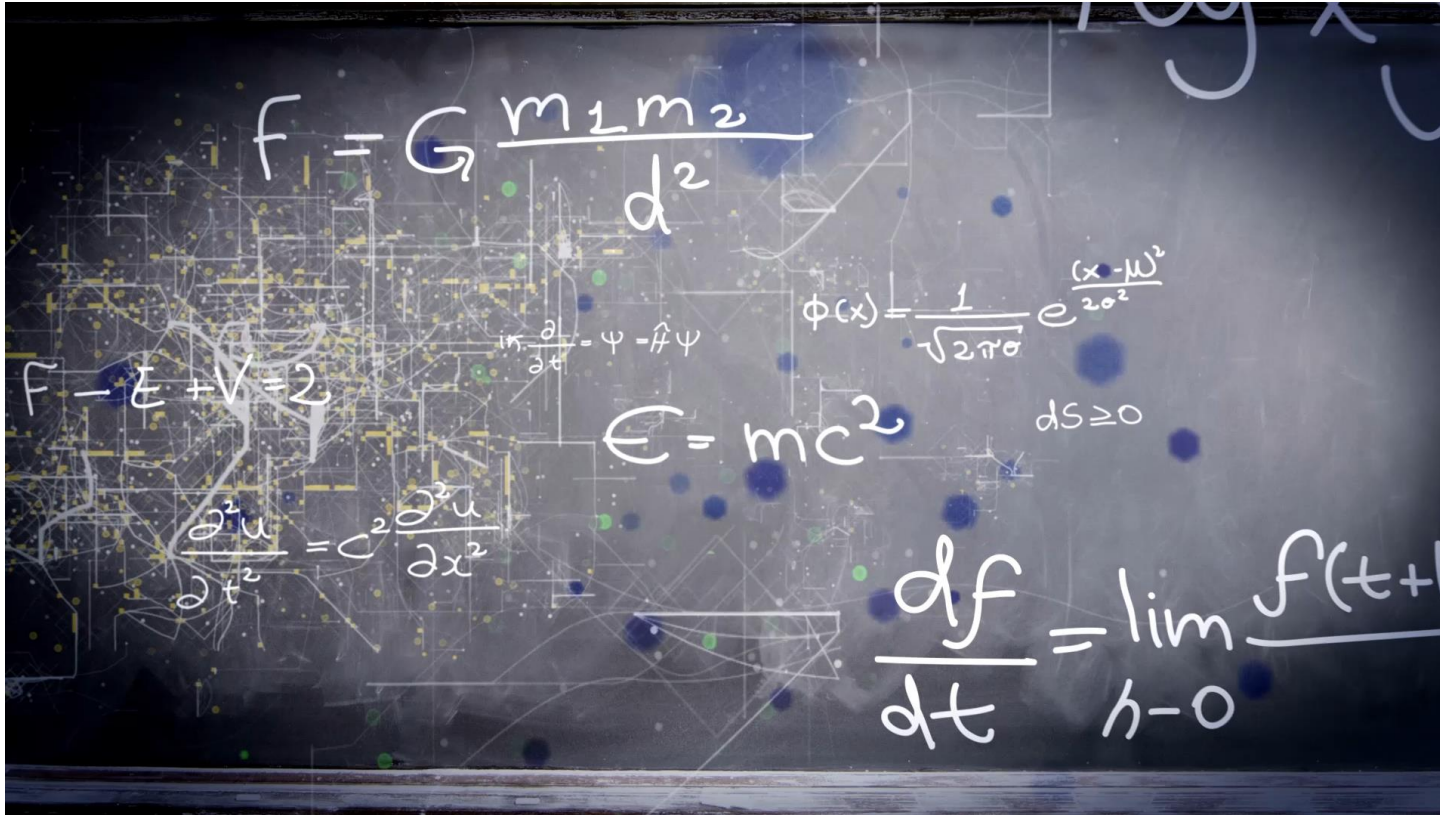 log x y
F = G m1 m2 / d²
ϕ(x) = 1 / √2πσ e (x-μ)² / 2σ²
iℏ ∂ / ∂t = Ψ = Ĥ Ψ
F - E + V = 2
E = mc²
dS ≥ 0
∂²u / ∂t² = c² ∂²u / ∂x²
df / dt = lim h-0 f(t+